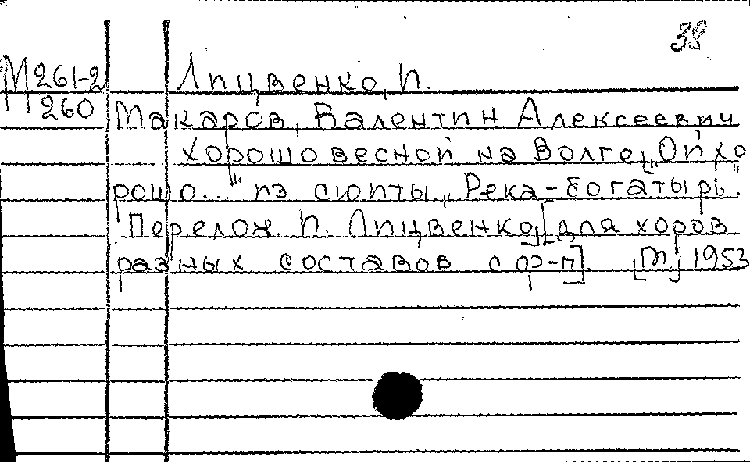 38
М 261-2 Лицвенко, П.
260 Макаров, Валентин Алексеевич
Хорошо весной на Волге, "Ой хо
рошо..." из сюиты "Река-богатырь".
Перелож. П. Лицвенко [для хоров
разных составов с ф-п]. [М.] 1953